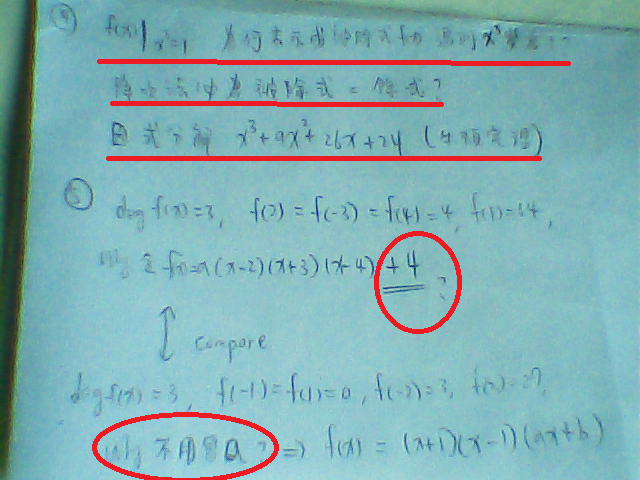 ④ f(x)|x³=1 為何表示成被除式 f(x) 遇到 x³
除法中為被除式 = 餘式?
因式分解 x³+9x²+26x+24 (牛頓定理)
⑤ deg f(x)=3, f(2)=f(-3)=f(4)=4, f(1)=64,
why 令 f(x)=a(x-2)(x+3)(x-4)+4?
compare
deg f(x)=3, f(-1)=f(1)=0, f(-2)=3, f(2)=27,
why 不用 ? ⇒ f(x) = (x+1)(x-1)(ax+b)